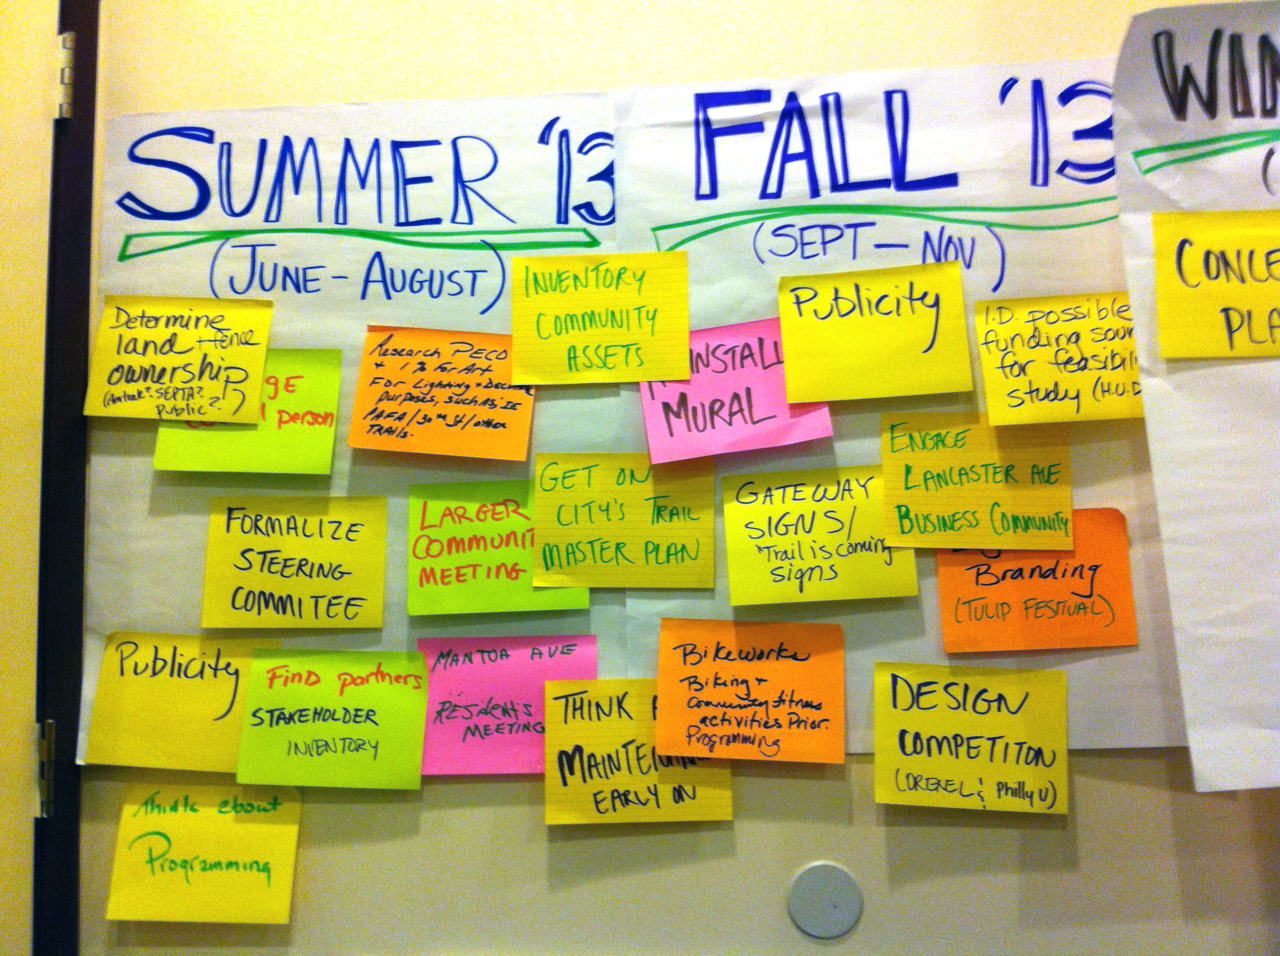 SUMMER '13
(JUNE - AUGUST)
FALL '13
(SEPT - NOV)
WIN
(
CONCE
PLA
Determine
land fence
ownership
(Amtrak? SEPTA?
public?)
GE
person
Research PECO
+ 1% For Art
For Lighting +
purposes, such as, IE
PAFA/30th St/other
TRAILS.
INVENTORY
COMMUNITY
ASSETS
INSTALL
MURAL
Publicity
I.D. possible
funding sour
for feasibili
study (H.U.D
FORMALIZE
STEERING
COMMITEE
LARGER
COMMUNIT
MEETING
GET ON
CITY'S TRAIL
MASTER PLAN
GATEWAY
SIGNS/
"Trail is coming
signs
ENGAGE
LANCASTER AVE
BUSINESS COMMUNITY
Branding
(TULIP FESTIVAL)
Publicity
FIND partners
STAKEHOLDER
INVENTORY
MANTUA AVE
RESIDENTS
MEETING
THINK
MAINTEN
EARLY ON
Bikeworks
Biking +
Community fitness
activities Prior.
Programming
DESIGN
COMPETITON
(DREXEL & Philly U)
Think about
Programming